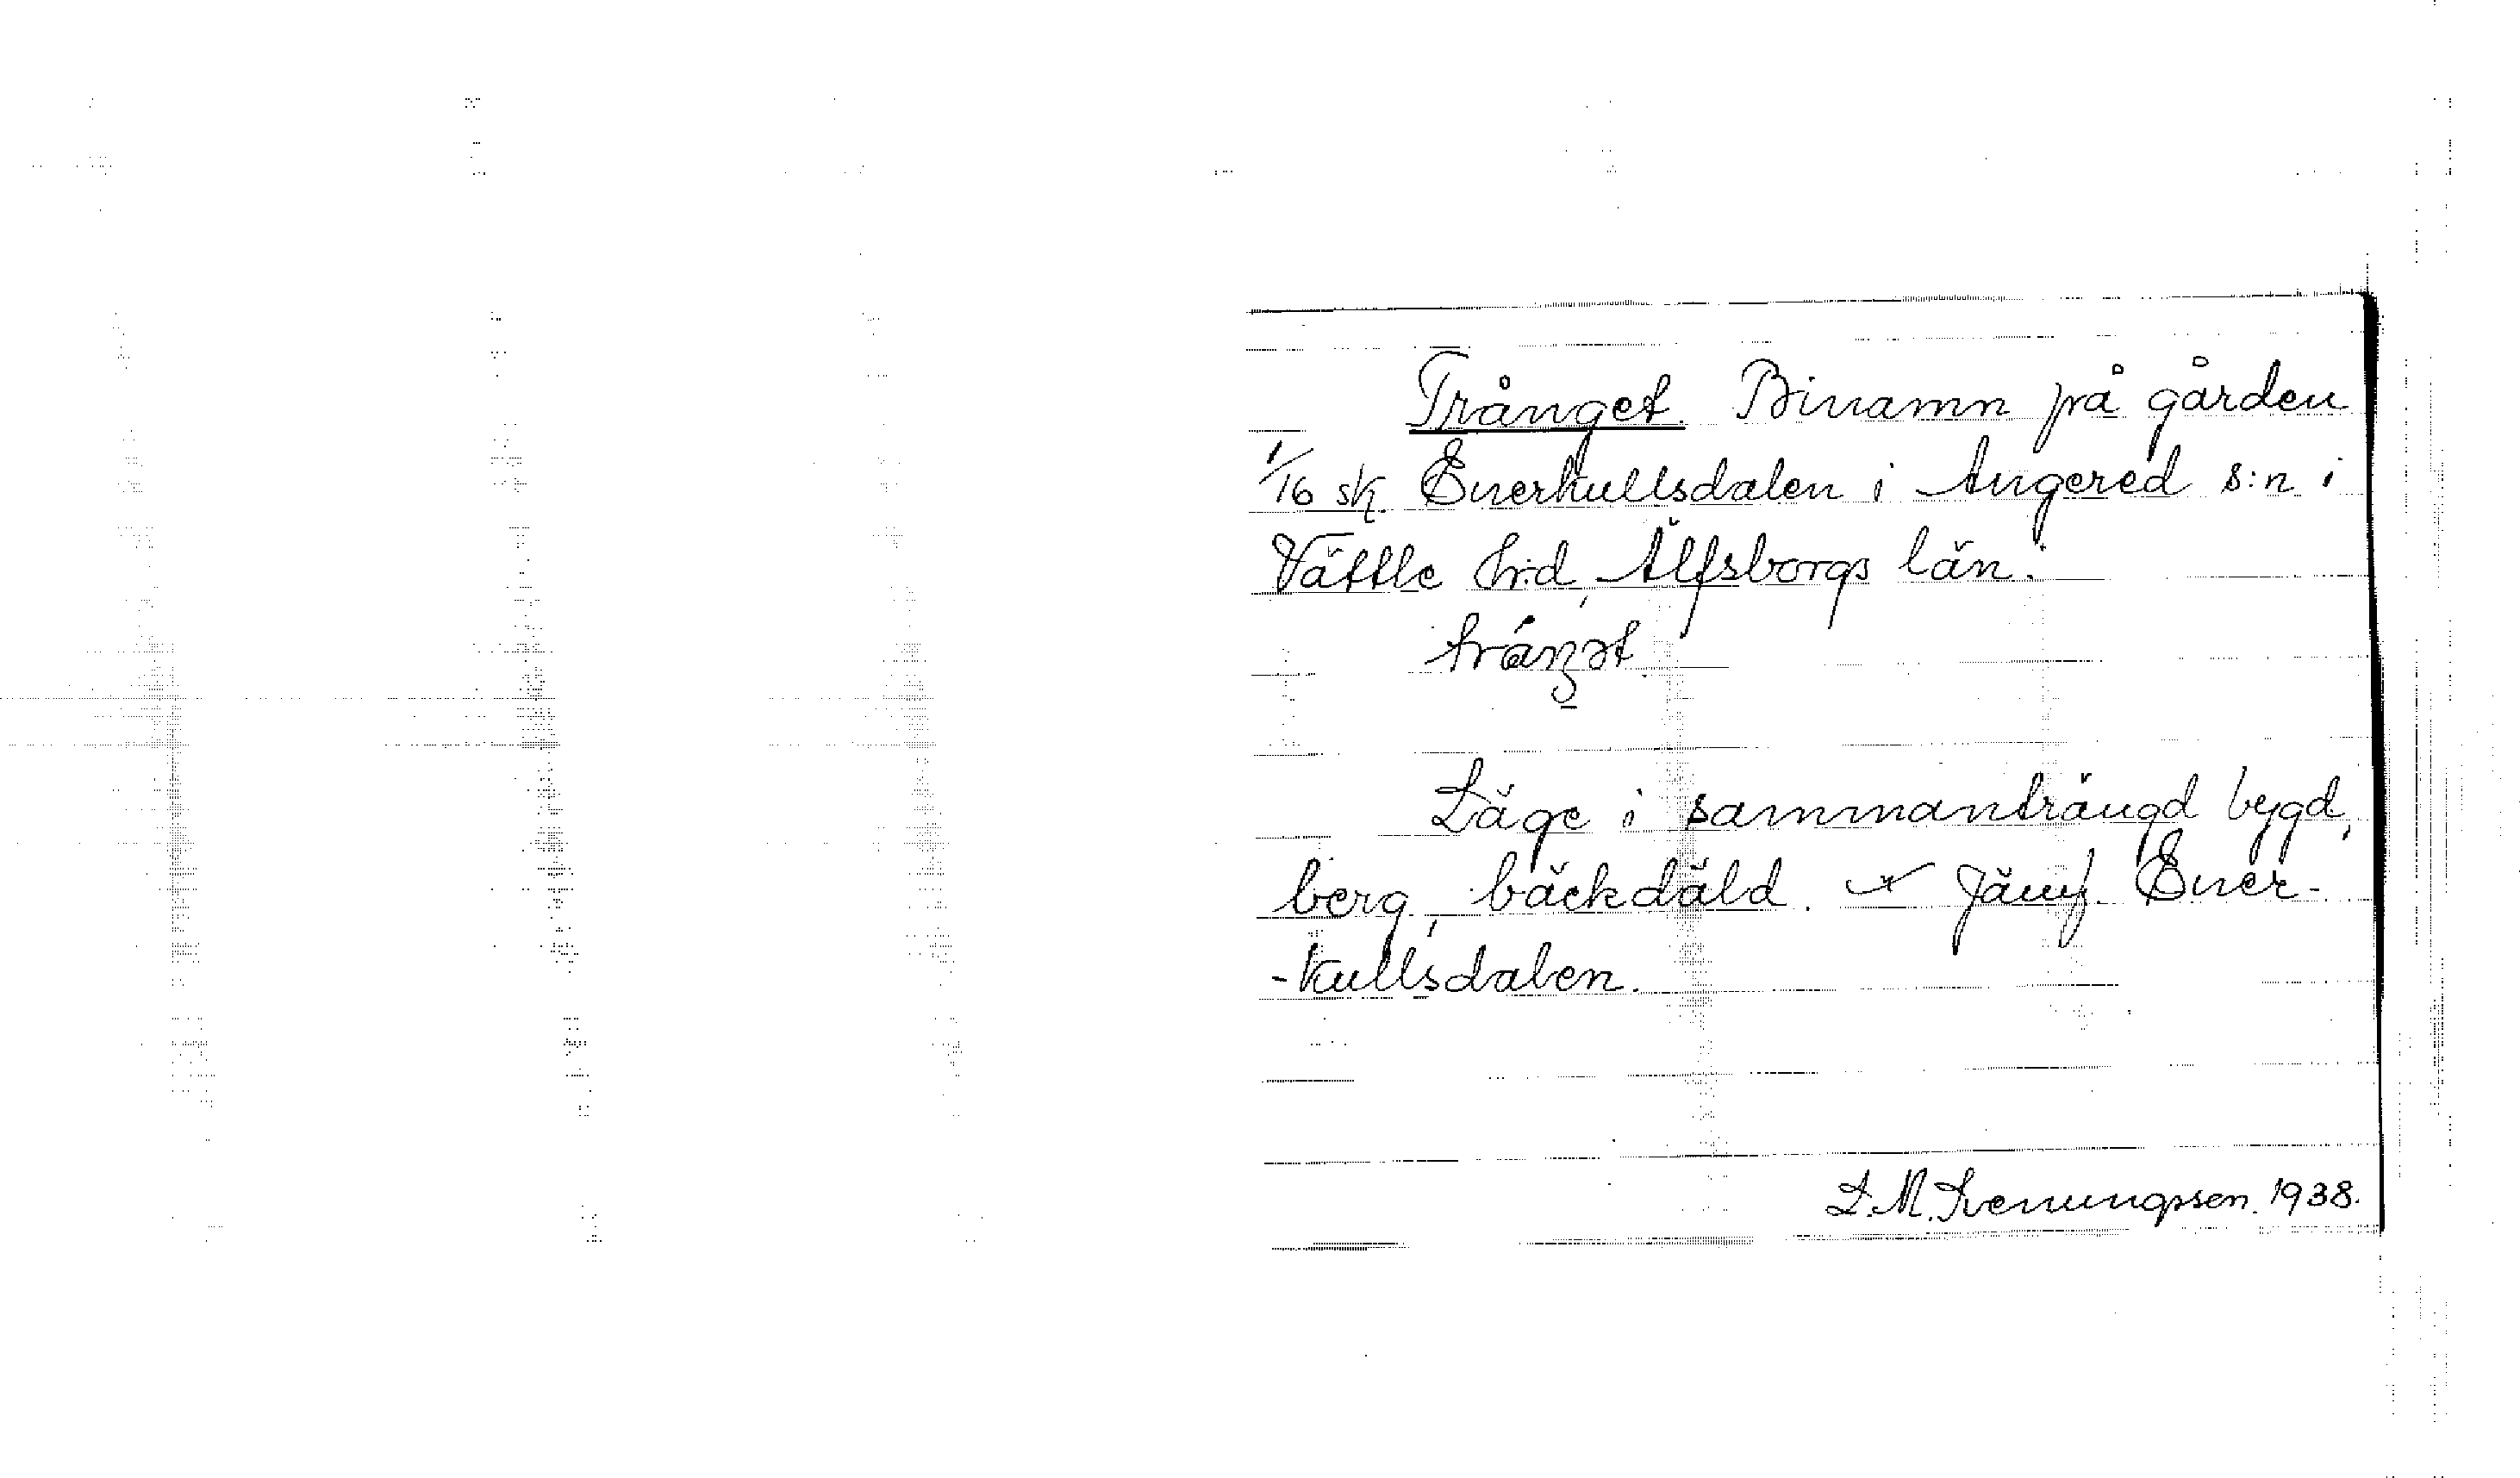 Trånget. Binamn på gården
1/16 sk. Enerkullsdalen i Angered s:n i
Vättle hrd, Älfsborgs län.
Läge i sammanträngd bygd,
berg, bäckdäld. Jämf. Ener-
-kullsdalen.
L.M. Svenungsson. 1938.